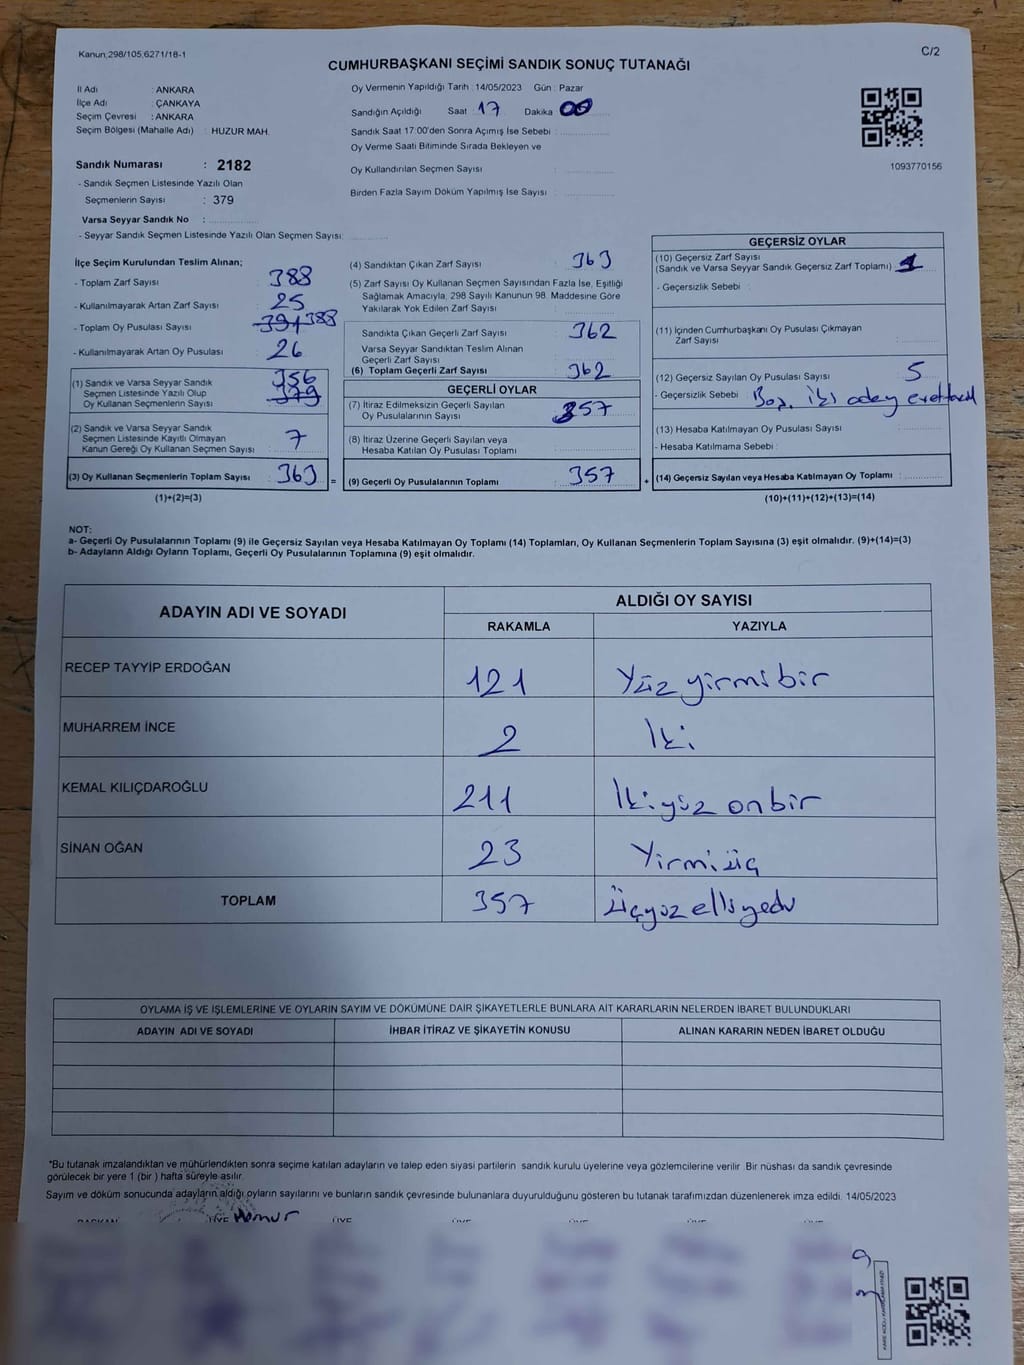 Kanun;298/105,6271/18-1
C/2
CUMHURBAŞKANI SEÇİMİ SANDIK SONUÇ TUTANAĞI
İl Adı : ANKARA
İlçe Adı : ÇANKAYA
Seçim Çevresi : ANKARA
Seçim Bölgesi (Mahalle Adı) : HUZUR MAH.
Sandık Numarası : 2182
- Sandık Seçmen Listesinde Yazılı Olan
Seçmenlerin Sayısı : 379
Varsa Seyyar Sandık No :
- Seyyar Sandık Seçmen Listesinde Yazılı Olan Seçmen Sayısı:
Oy Vermenin Yapıldığı Tarih : 14/05/2023 Gün : Pazar
Sandığın Açıldığı Saat : 17 Dakika 00
Sandık Saat 17:00'den Sonra Açımış İse Sebebi :
Oy Verme Saati Bitiminde Sırada Bekleyen ve
Oy Kullandırılan Seçmen Sayısı :
Birden Fazla Sayım Döküm Yapılmış İse Sayısı :
1093770156
İlçe Seçim Kurulundan Teslim Alınan;
- Toplam Zarf Sayısı : 388
- Kullanılmayarak Artan Zarf Sayısı : 25
- Toplam Oy Pusulası Sayısı : 391 388
- Kullanılmayarak Artan Oy Pusulası : 26
356
(1) Sandık ve Varsa Seyyar Sandık
Seçmen Listesinde Yazılı Olup 379
Oy Kullanan Seçmenlerin Sayısı :
(2) Sandık ve Varsa Seyyar Sandık
Seçmen Listesinde Kayıtlı Olmayan 7
Kanun Gereği Oy Kullanan Seçmen Sayısı :
(3) Oy Kullanan Seçmenlerin Toplam Sayısı : 363 =
(1)+(2)=(3)
(4) Sandıktan Çıkan Zarf Sayısı : 363
(5) Zarf Sayısı Oy Kullanan Seçmen Sayısından Fazla İse, Eşitliği
Sağlamak Amacıyla, 298 Sayılı Kanunun 98. Maddesine Göre
Yakılarak Yok Edilen Zarf Sayısı :
Sandıkta Çıkan Geçerli Zarf Sayısı : 362
Varsa Seyyar Sandıktan Teslim Alınan
Geçerli Zarf Sayısı :
(6) Toplam Geçerli Zarf Sayısı : 362
GEÇERLİ OYLAR
(7) İtiraz Edilmeksizin Geçerli Sayılan
Oy Pusulalarının Sayısı : 357
(8) İtiraz Üzerine Geçerli Sayılan veya
Hesaba Katılan Oy Pusulası Toplamı :
(9) Geçerli Oy Pusulalarının Toplamı : 357 +
GEÇERSİZ OYLAR
(10) Geçersiz Zarf Sayısı
(Sandık ve Varsa Seyyar Sandık Geçersiz Zarf Toplamı) : 1
- Geçersizlik Sebebi :
(11) İçinden Cumhurbaşkanı Oy Pusulası Çıkmayan
Zarf Sayısı :
(12) Geçersiz Sayılan Oy Pusulası Sayısı : 5
- Geçersizlik Sebebi : Boş, iki aday
(13) Hesaba Katılmayan Oy Pusulası Sayısı :
- Hesaba Katılmama Sebebi :
(14) Geçersiz Sayılan veya Hesaba Katılmayan Oy Toplamı :
(10)+(11)+(12)+(13)=(14)
NOT:
a- Geçerli Oy Pusulalarının Toplamı (9) ile Geçersiz Sayılan veya Hesaba Katılmayan Oy Toplamı (14) Toplamları, Oy Kullanan Seçmenlerin Toplam Sayısına (3) eşit olmalıdır. (9)+(14)=(3)
b- Adayların Aldığı Oyların Toplamı, Geçerli Oy Pusulalarının Toplamına (9) eşit olmalıdır.
ADAYIN ADI VE SOYADI
ALDIĞI OY SAYISI
RAKAMLA YAZIYLA
RECEP TAYYİP ERDOĞAN 121 Yüz yirmi bir
MUHARREM İNCE 2 İki
KEMAL KILIÇDAROĞLU 211 İki yüz on bir
SİNAN OĞAN 23 Yirmi üç
TOPLAM 357 Üçyüz elli yedi
OYLAMA İŞ VE İŞLEMLERİNE VE OYLARIN SAYIM VE DÖKÜMÜNE DAİR ŞİKAYETLERLE BUNLARA AİT KARARLARIN NELERDEN İBARET BULUNDUKLARI
ADAYIN ADI VE SOYADI İHBAR İTİRAZ VE ŞİKAYETİN KONUSU ALINAN KARARIN NEDEN İBARET OLDUĞU
*Bu tutanak imzalandıktan ve mühürlendikten sonra seçime katılan adayların ve talep eden siyasi partilerin sandık kurulu üyelerine veya gözlemcilerine verilir. Bir nüshası da sandık çevresinde
görülecek bir yere 1 (bir) hafta süreyle asılır.
Sayım ve döküm sonucunda adayların aldığı oyların sayılarını ve bunların sandık çevresinde bulunanlara duyurulduğunu gösteren bu tutanak tarafımızdan düzenlenerek imza edildi. 14/05/2023
BAŞKAN ÜYE Memur ÜYE ÜYE ÜYE ÜYE ÜYE